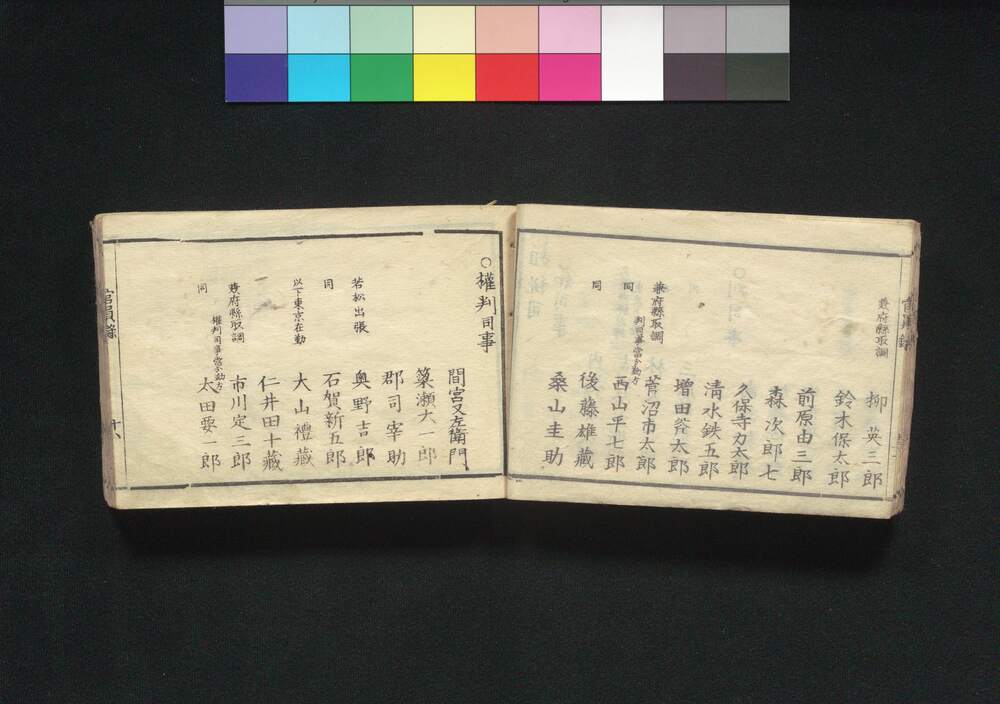 官員録
兼府縣取調
柳英三郎
鈴木保太郎
前原由三郎
森次郎七
久保寺力太郎
清水鉄五郎
増田谷太郎
兼府縣取調
判司事當分勤方
菅沼市太郎
同
西山平七郎
同
後藤雄藏
桑山圭助
○權判司事
間宮又左衛門
簗瀬大一郎
郡司宰助
若松出張
奥野吉郎
同
石賀新五郎
以下東京在勤
大山禮藏
仁井田十藏
兼府縣取調
權判司事當分勤方
市川定三郎
同
太田要一郎
官員録